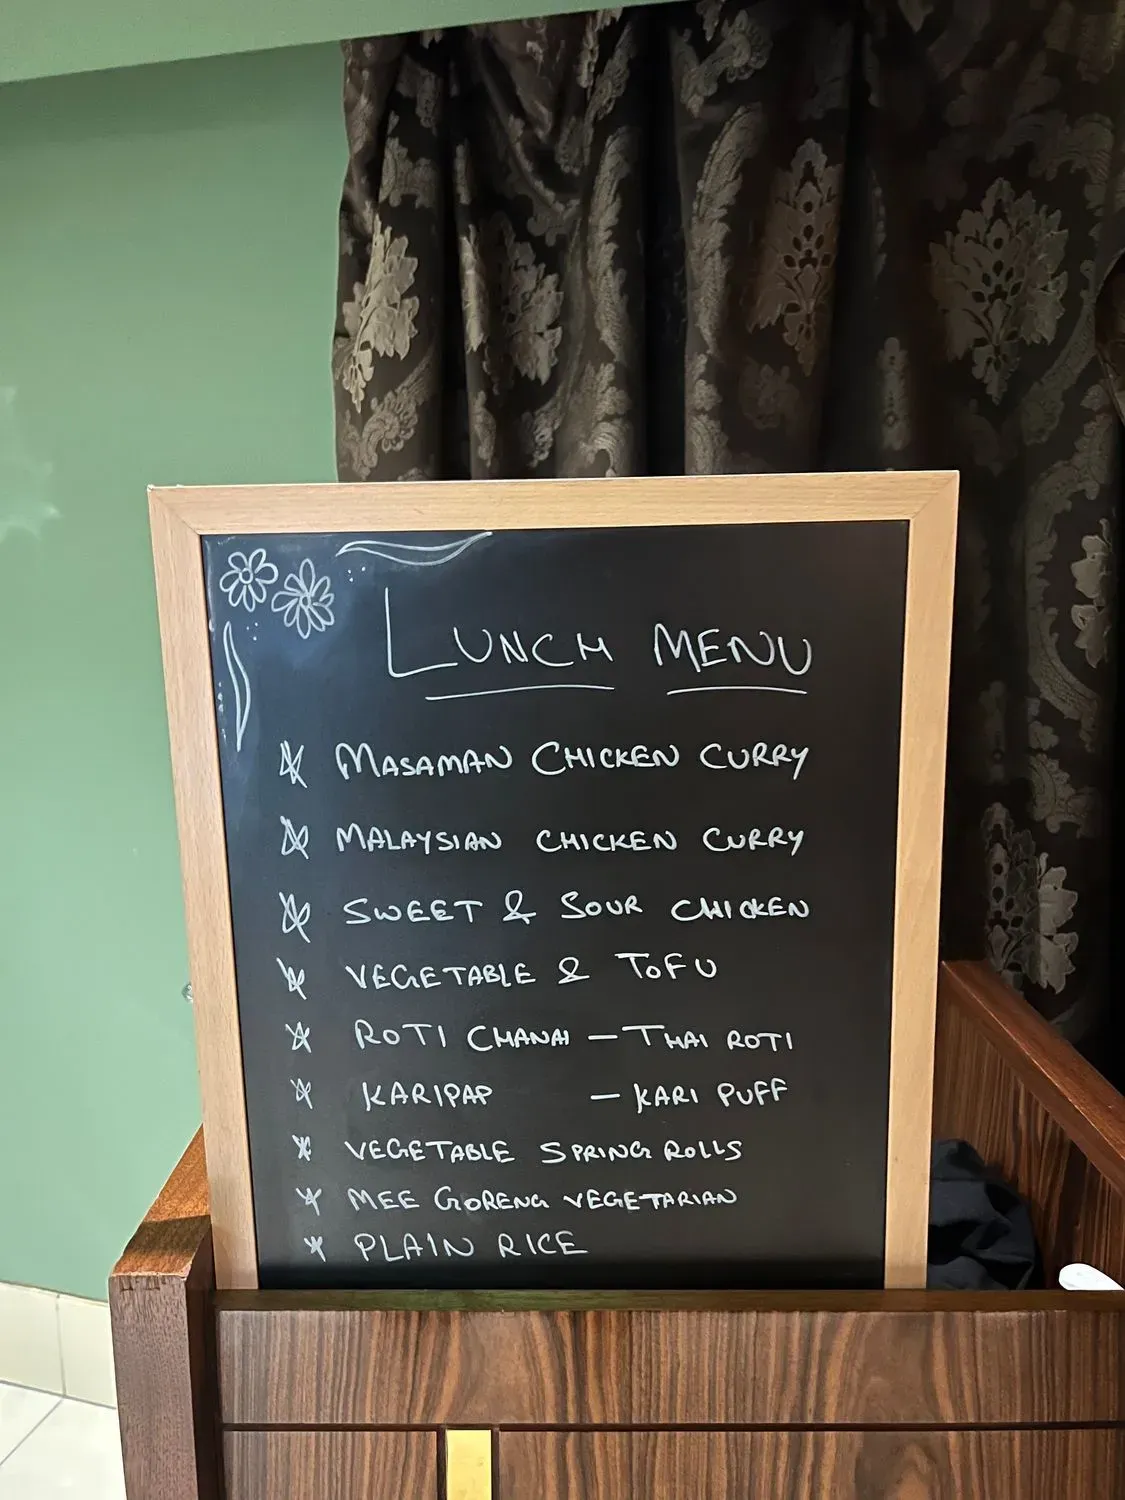 LUNCH MENU
MASAMAN CHICKEN CURRY
MALAYSIAN CHICKEN CURRY
SWEET & SOUR CHICKEN
VEGETABLE & TOFU
ROTI CHANAI – THAI ROTI
KARIPAP – KARI PUFF
VEGETABLE SPRING ROLLS
MEE GORENG VEGETARIAN
PLAIN RICE